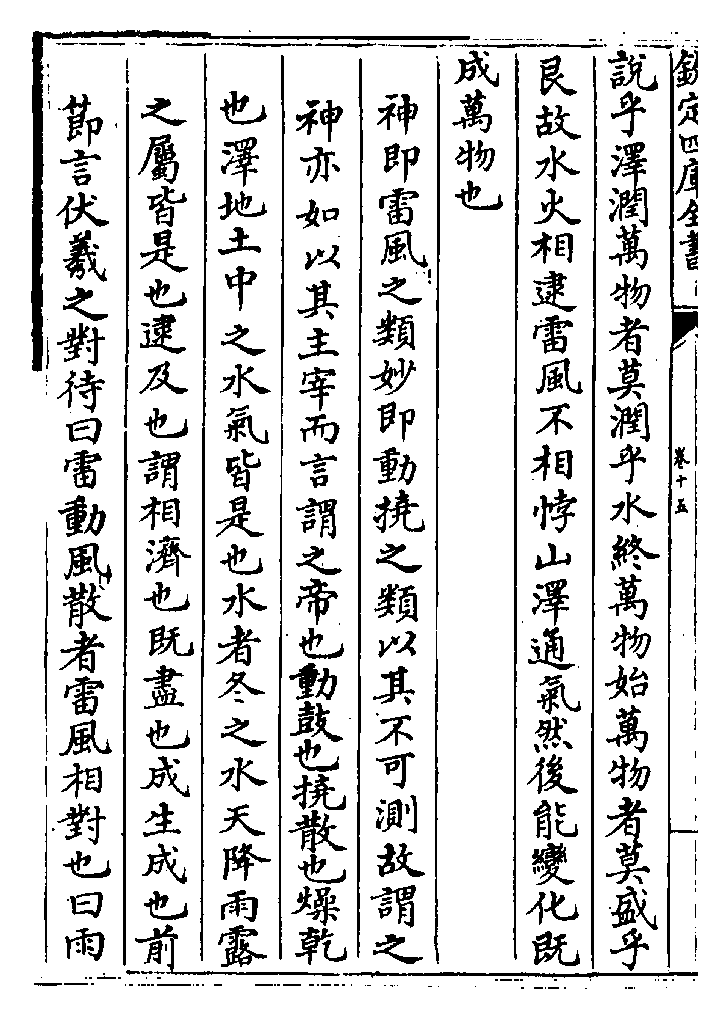 欽定四庫全書
卷十五
說乎澤潤萬物者莫潤乎水終萬物始萬物者莫盛乎
艮故水火相逮雷風不相悖山澤通氣然後能變化既
成萬物也
神即雷風之類妙即動撓之類以其不可測故謂之
神亦如以其主宰而言謂之帝也動鼓也撓散也燥乾
也澤地土中之水氣皆是也水者冬之水天降雨露
之屬皆是也逮及也謂相濟也既盡也成生成也前
節言伏羲之對待曰雷動風散者雷風相對也曰雨